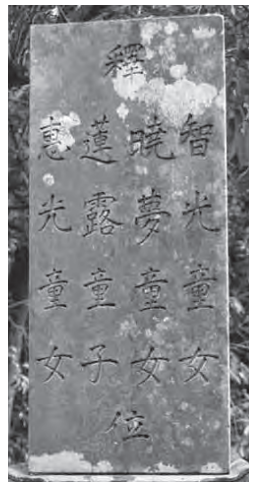 釋
智光童女
曉夢童女
蓮露童子
惠光童女
位